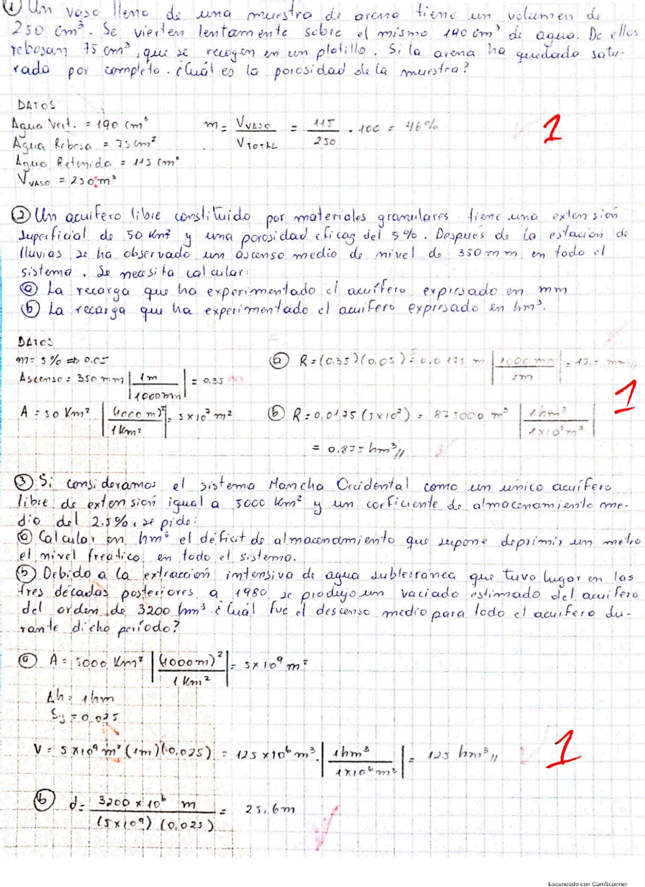 ① Un vaso lleno de una muestra de arena tiene un volumen de
250 cm³. Se vierten lentamente sobre el mismo 190 cm³ de agua. De ellos
rebosan 75 cm³, que se recogen en un platillo. Si la arena ha quedado satu-
rada por completo. ¿Cuál es la porosidad de la muestra?
DATOS
Agua Vert. = 190 cm³
Agua Rebosa = 75 cm³
Agua Retenida = 115 cm³
V VASO = 250 m³
m = V VASO / V TOTAL = 115 / 250 · 100 = 46%
1
② Un acuifero libre constituido por materiales granulares tiene una extensión
superficial de 50 Km² y una porosidad eficaz del 5%. Después de la estación de
lluvias se ha observado un ascenso medio de nivel de 350 mm en todo el
sistema. Se necesita calcular:
ⓐ La recarga que ha experimentado el acuífero expresado en mm
ⓑ La recarga que ha experimentado el acuifero expresado en hm³.
DATOS
m = 5% => 0.05
Ascenso = 350 mm | 1m / 1000mm | = 0.35
A = 50 Km² | (1000 m)² / 1 Km² | = 5x10⁷ m²
ⓐ R = (0.35)(0.05) = 0.0175 m | 1000 mm / 1m | = 17.5 mm //
ⓑ R = 0.0175 (5x10⁷) = 875000 m³ | 1hm³ / 1x10⁶m³ |
= 0.875 hm³ //
1
③ Si consideramos el sistema Mancha Occidental como un único acuífero
libre de extensión igual a 5000 Km² y un coeficiente de almacenamiento me-
dio del 2.5%, se pide:
ⓐ Calcular en hm³ el déficit de almacenamiento que supone deprimir un metro
el nivel freatico en todo el sistema.
ⓑ Debido a la extracción intensiva de agua subterranea que tuvo lugar en las
tres décadas posteriores a 1980 se produjo un vaciado estimado del acuifero
del orden de 3200 hm³ ¿Cuál fue el descenso medio para todo el acuifero du-
rante dicho período?
ⓐ A = 5000 Km² | (1000m)² / 1 Km² | = 5x10⁹ m²
Δh = 1hm
Sy = 0.025
V = 5x10⁹ m² (1m)(0.025) = 125x10⁶ m³ · | 1hm³ / 1x10⁶m³ | = 125 hm³ //
1
ⓑ d = 3200 x 10⁶ m / (5x10⁹)(0.025) = 25.6m
Escaneado con CamScanner